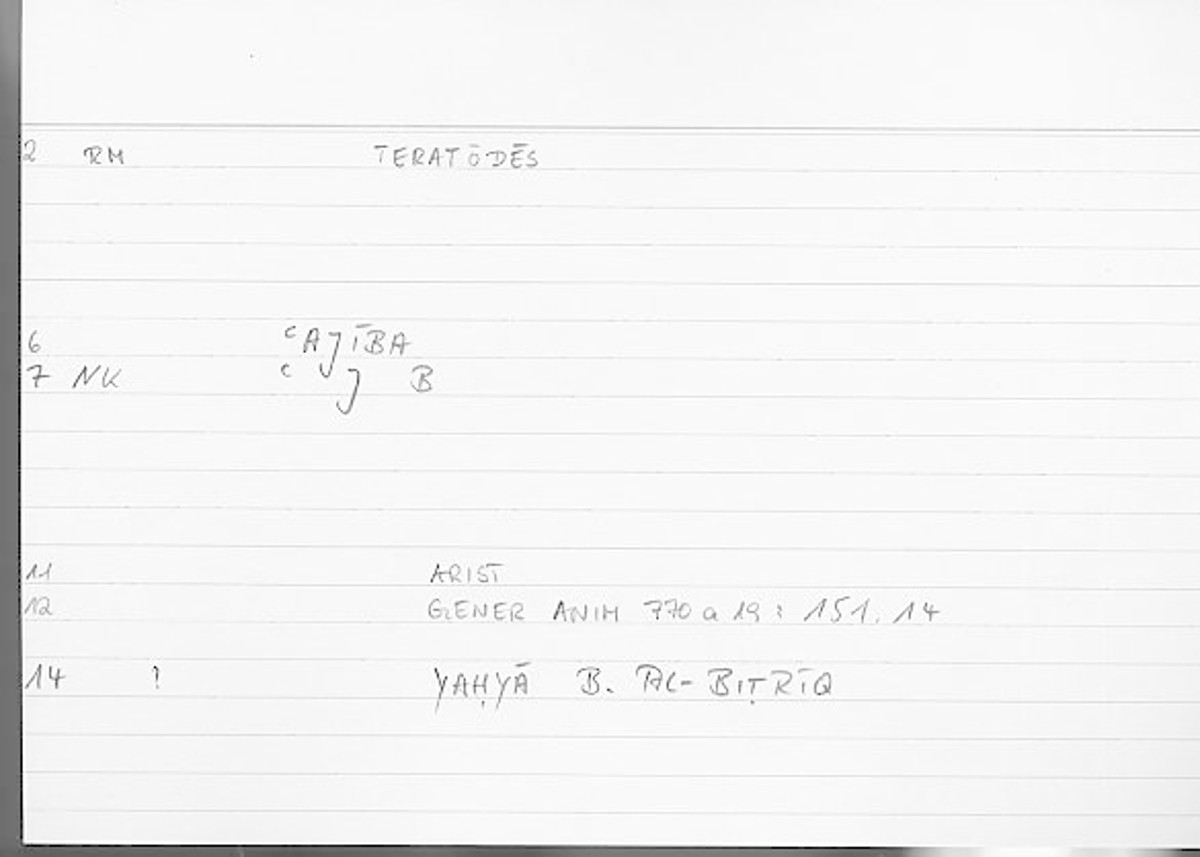 2 RM TERATŌDĒS
6 ʿAJĪBA
7 NK ʿ J B
11 ARIST
12 GENER ANIM 770 a 19 : 151. 14
14 ? YAḤYĀ B. AL-BIṬRĪQ